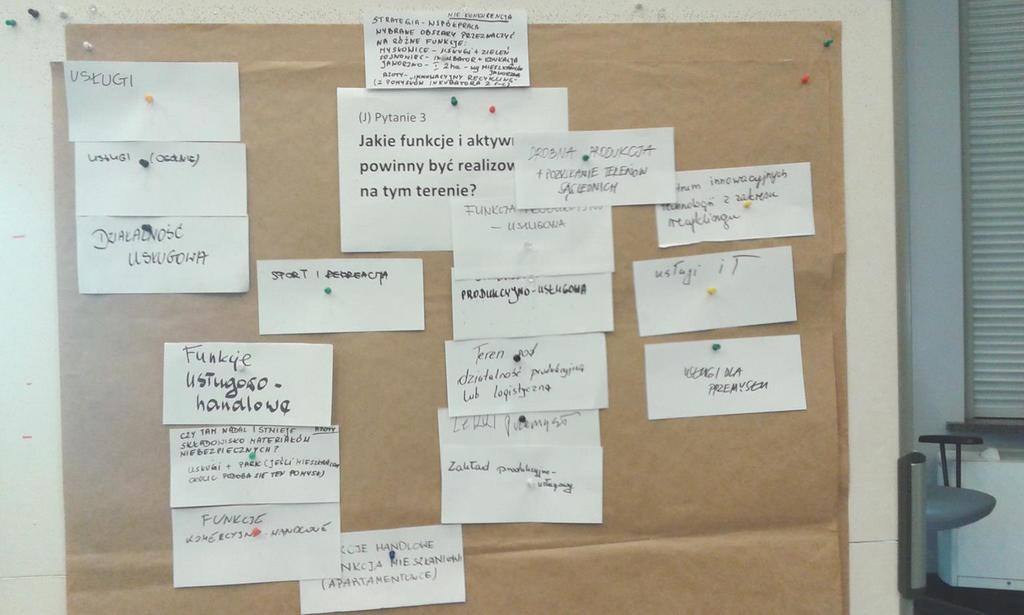 NIE KONKURENCJA
STRATEGIA - WSPÓŁPRACA
WYBRANE OBSZARY PRZEZNACZYĆ
NA RÓŻNE FUNKCJE:
MYSŁOWICE - USŁUGI + ZIELEŃ
SOSNOWIEC - INKUBATOR + EDUKACJA
JAWORZNO - I 2ha - wg MIESZKAŃCÓW
JAWORZNA
AZOTY - INNOWACYJNY RECYKLING
(Z POMYSŁÓW INKUBATORA Z
(J) Pytanie 3
Jakie funkcje i aktyw
powinny być realizow
na tym terenie?
USŁUGI
USŁUGI (OGÓLNIE)
DZIAŁALNOŚĆ
USŁUGOWA
SPORT I REKREACJA
DROBNA PRODUKCJA
+ POZYSKANIE TERENÓW
SĄSIEDNICH
FUNKCJA PRODUKCYJNO
- USŁUGOWA
PRODUKCYJNO-USŁUGOWA
Teren pod
działalność produkcyjną
lub logistyczną
Lekki przemysł
Zakład produkcyjno-
usługowy
trum innowacyjnych
technologii z zakresu
recyklingu
usługi IT
USŁUGI DLA
PRZEMYSŁU
Funkcje
usługowo-
handlowe
AZOTY
CZY TAM NADAL ISTNIEJE
SKŁADOWISKO MATERIAŁÓW
NIEBEZPIECZNYCH?
USŁUGI + PARK (JEŚLI MIESZKAŃCOM
OKOLIC PODOBA SIĘ TEN POMYSŁ)
FUNKCJE
KOMERCYJNO-HANDLOWE
KCJE HANDLOWE
NKCJA MIESZKANIOW
(APARTAMENTOWCE)